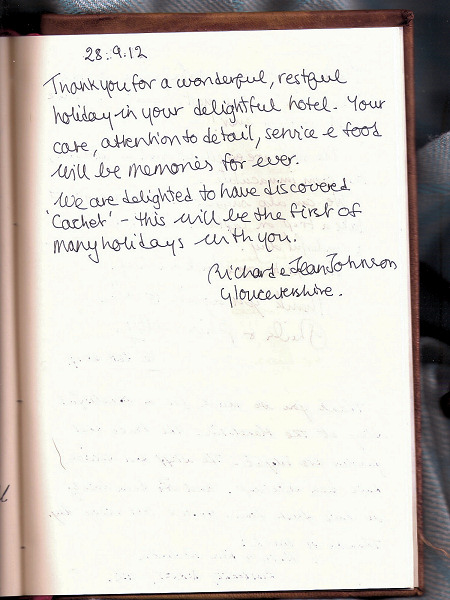 28.9.12
Thank you for a wonderful, restful
holiday in your delightful hotel. Your
care, attention to detail, service & food
will be memories for ever.
We are delighted to have discovered
'Cachet' - this will be the first of
many holidays with you.
Richard & Jean Johnson
Gloucestershire.